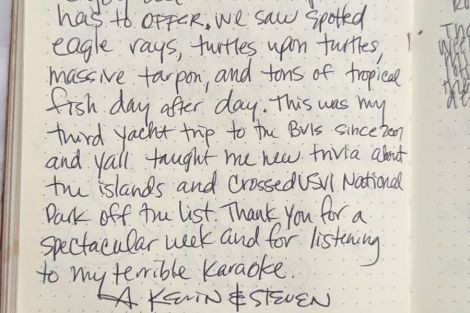 has to OFFER. We saw spotted
eagle rays, turtles upon turtles,
massive tarpon, and tons of tropical
fish day after day. This was my
third yacht trip to the BVIs since 2007
and yall taught me new trivia about
the islands and crossed USVI National
Park off the list. Thank you for a
spectacular week and for listening
to my terrible karaoke.
A. KEVIN & STEVEN